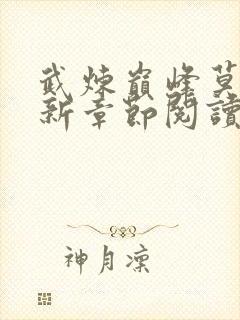 武煉巔峰莫
新章節閱讀
神月凜